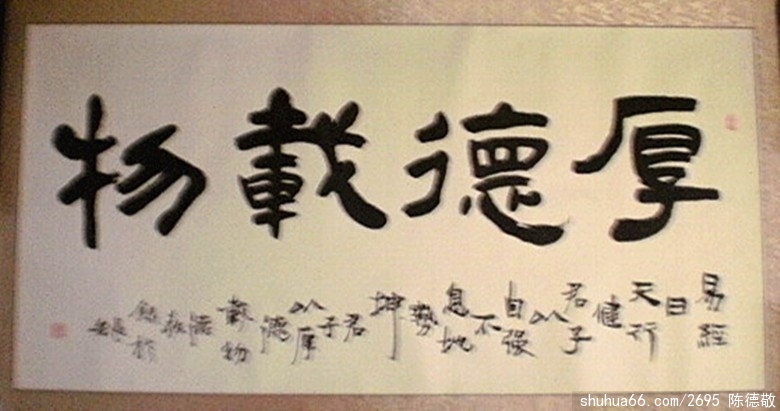 厚德載物
易經
曰
天行
健
君子
以
自強
不
息地
勢
坤
君
子
以厚
德
載物
shuhua66.com/2695 陈德敬